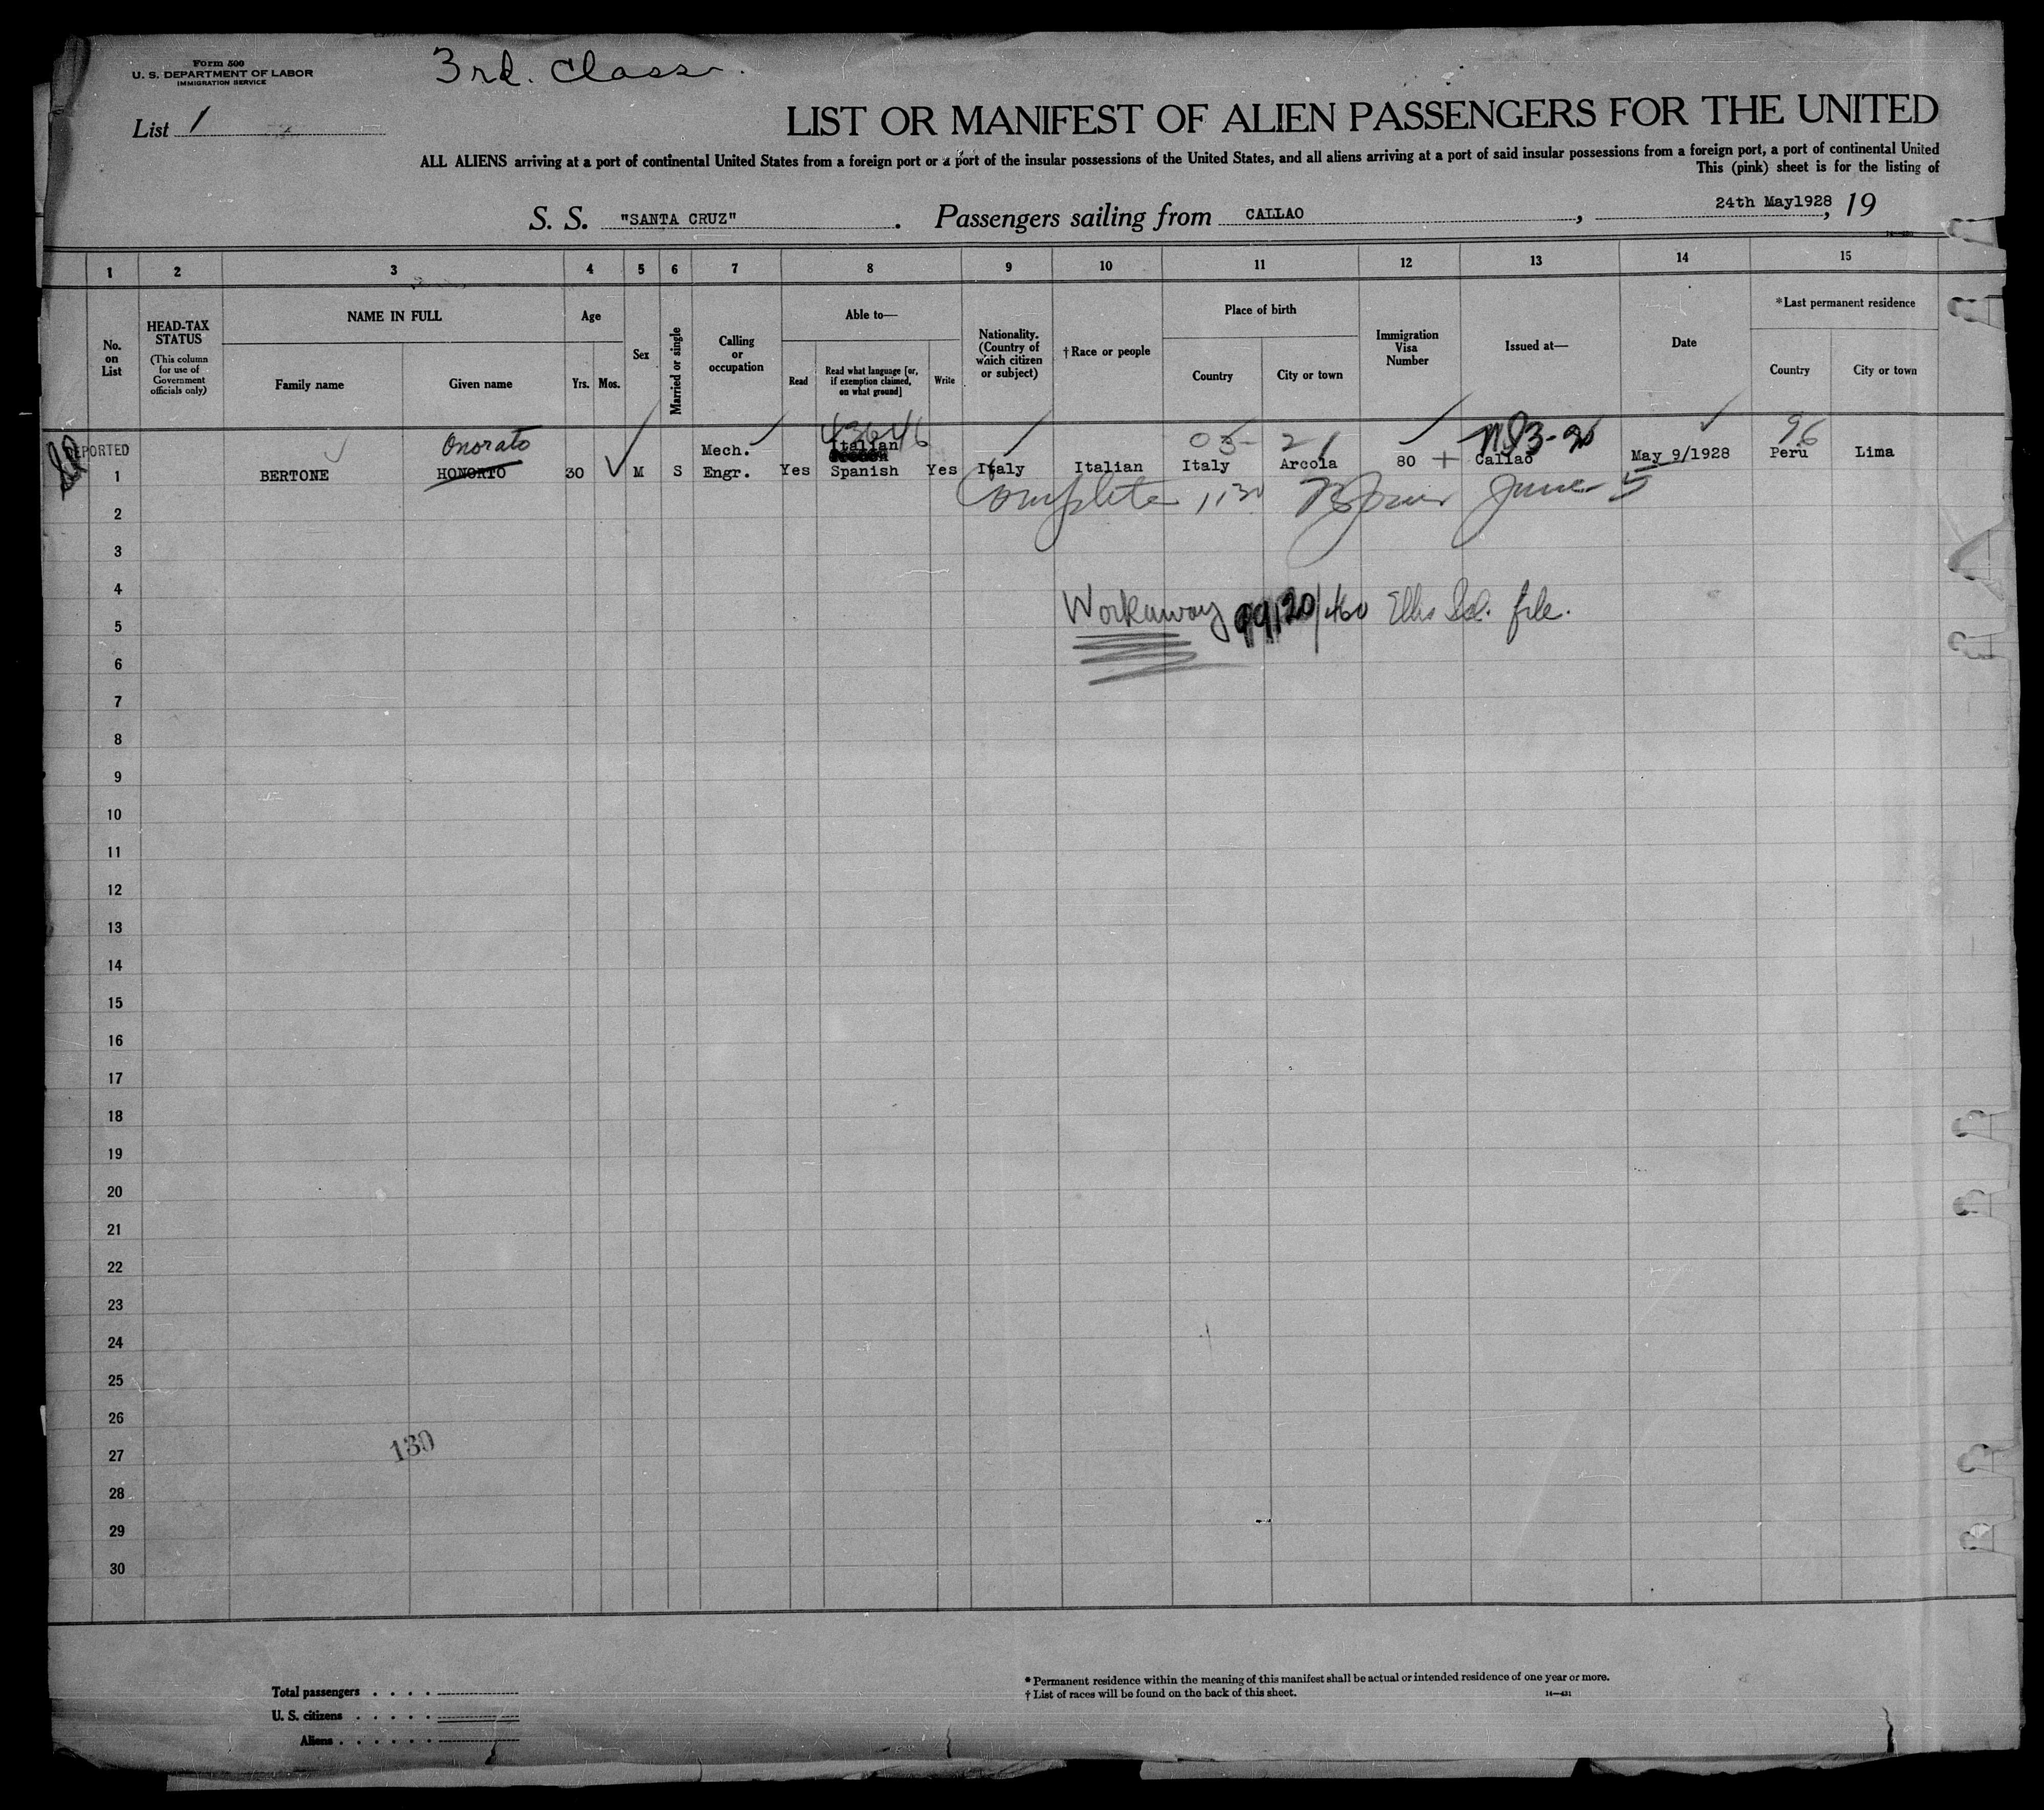 Form 500
U. S. DEPARTMENT OF LABOR
IMMIGRATION SERVICE
3rd. Class.
List 1
LIST OR MANIFEST OF ALIEN PASSENGERS FOR THE UNITED
ALL ALIENS arriving at a port of continental United States from a foreign port or a port of the insular possessions of the United States, and all aliens arriving at a port of said insular possessions from a foreign port, a port of continental United
This (pink) sheet is for the listing of
S. S. "SANTA CRUZ". Passengers sailing from CALLAO, 24th May1928, 19
1 2 3 4 5 6 7 8 9 10 11 12 13 14 15
No. on List
HEAD-TAX STATUS
(This column for use of Government officials only)
NAME IN FULL
Family name
Given name
Age
Yrs.
Mos.
Sex
Married or single
Calling or occupation
Able to—
Read
Read what language [or, if exemption claimed, on what ground]
Write
Nationality. (Country of which citizen or subject)
†Race or people
Place of birth
Country
City or town
Immigration Visa Number
Issued at—
Date
*Last permanent residence
Country
City or town
Onorato
Mech.
Italian
05 21
96
1 BERTONE HONORTO 30 M S Engr. Yes Spanish Yes Italy Italian Italy Arcola 80 + Callao May 9/1928 Peru Lima
2
Complete 1130 June 5
3
4
5
Workaway 99120/460 Ellis Isl. file.
6
7
8
9
10
11
12
13
14
15
16
17
18
19
20
21
22
23
24
25
26
27
130
28
29
30
Total passengers
U. S. citizens
Aliens
* Permanent residence within the meaning of this manifest shall be actual or intended residence of one year or more.
† List of races will be found on the back of this sheet.
14—431